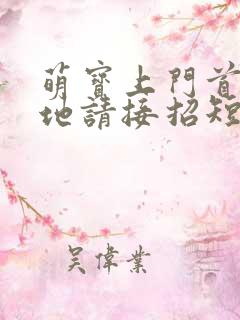 萌寶上門首
地請接招短
吳偉業